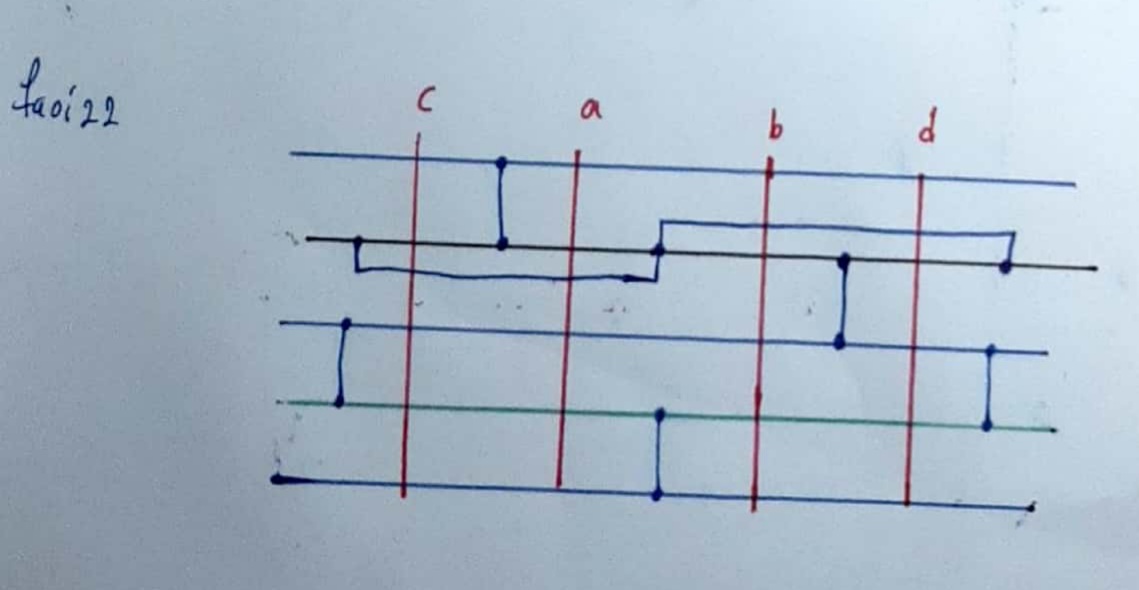 faoi22
c a b d